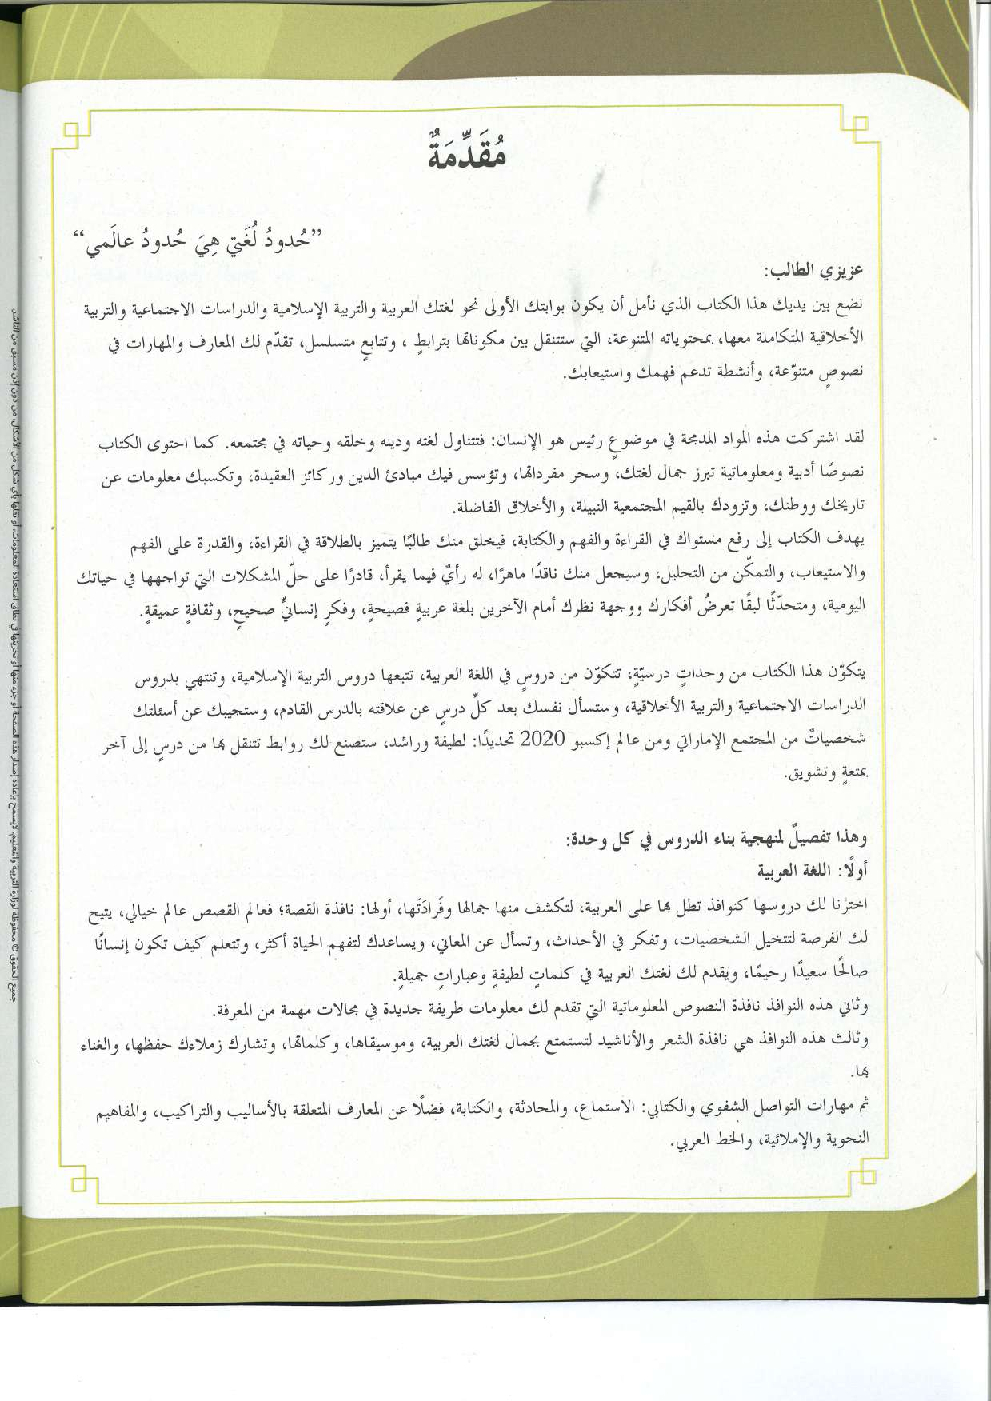 مُقَدِّمَةٌ
”حُدودُ لُغَتي هِيَ حُدودُ عالَمي“
عزيزي الطالب:
نضع بين يديك هذا الكتاب الذي نأمل أن يكون بوابتك الأولى نحو لغتك العربية والتربية الإسلامية والدراسات الاجتماعية والتربية
الأخلاقية المتكاملة معها، بمحتوياته المتنوعة، التي ستتنقل بين مكوناتها بترابطٍ ، وتتابعٍ متسلسل، تقدّم لك المعارف والمهارات في
نصوصٍ متنوّعة، وأنشطة تدعم فهمك واستيعابك.
لقد اشتركت هذه المواد المدمجة في موضوعٍ رئيس هو الإنسان: فتتناول لغته ودينه وخلقه وحياته في مجتمعه. كما احتوى الكتاب
نصوصًا أدبية ومعلوماتية تبرز جمال لغتك، وسحر مفرداتها، وتؤسس فيك مبادئ الدين وركائز العقيدة، وتكسبك معلومات عن
تاريخك ووطنك، وتزودك بالقيم المجتمعية النبيلة، والأخلاق الفاضلة.
يهدف الكتاب إلى رفع مستواك في القراءة والفهم والكتابة، فيخلق منك طالبًا يتميز بالطلاقة في القراءة، والقدرة على الفهم
والاستيعاب، والتمكّن من التحليل، وسيجعل منك ناقدًا ماهرًا، له رأيٌ فيما يقرأ، قادرًا على حلّ المشكلات التي تواجهها في حياتك
اليومية، ومتحدّثًا لبقًا تعرضُ أفكارك ووجهة نظرك أمام الآخرين بلغة عربية فصيحةٍ، وفكرٍ إنسانيٍّ صحيحٍ، وثقافةٍ عميقةٍ.
يتكوّن هذا الكتاب من وحداتٍ درسيّةٍ، تتكوّن من دروسٍ في اللغة العربية، تتبعها دروس التربية الإسلامية، وتنتهي بدروس
الدراسات الاجتماعية والتربية الأخلاقية، وستسأل نفسك بعد كلّ درسٍ عن علاقته بالدرس القادم، وستجيبك عن أسئلتك
شخصياتٌ من المجتمع الإماراتي ومن عالم إكسبو 2020 تحديدًا: لطيفة وراشد، ستصنع لك روابط تتنقل بها من درسٍ إلى آخر
بمتعةٍ وتشويق.
وهذا تفصيلٌ لمنهجية بناء الدروس في كل وحدة:
أولًا: اللغة العربية
اخترنا لك دروسها كنوافذ تطل بها على العربية، لتكشف منها جمالها وفَرادَتَها، أولها: نافذة القصة؛ فعالم القصص عالم خيالي، يتيح
لك الفرصة لتتخيل الشخصيات، وتفكر في الأحداث، وتسأل عن المعاني، ويساعدك لتفهم الحياة أكثر، وتتعلم كيف تكون إنسانًا
صالحًا سعيدًا رحيمًا، ويقدم لك لغتك العربية في كلماتٍ لطيفةٍ وعباراتٍ جميلةٍ.
وثاني هذه النوافذ نافذة النصوص المعلوماتية التي تقدم لك معلومات طريفة جديدة في مجالات مهمة من المعرفة.
وثالث هذه النوافذ هي نافذة الشعر والأناشيد لتستمتع بجمال لغتك العربية، وموسيقاها، وكلماتها، وتشارك زملاءك حفظها، والغناء
بها.
ثم مهارات التواصل الشفوي والكتابي: الاستماع، والمحادثة، والكتابة، فضلًا عن المعارف المتعلقة بالأساليب والتراكيب، والمفاهيم
النحوية والإملائية، والخط العربي.